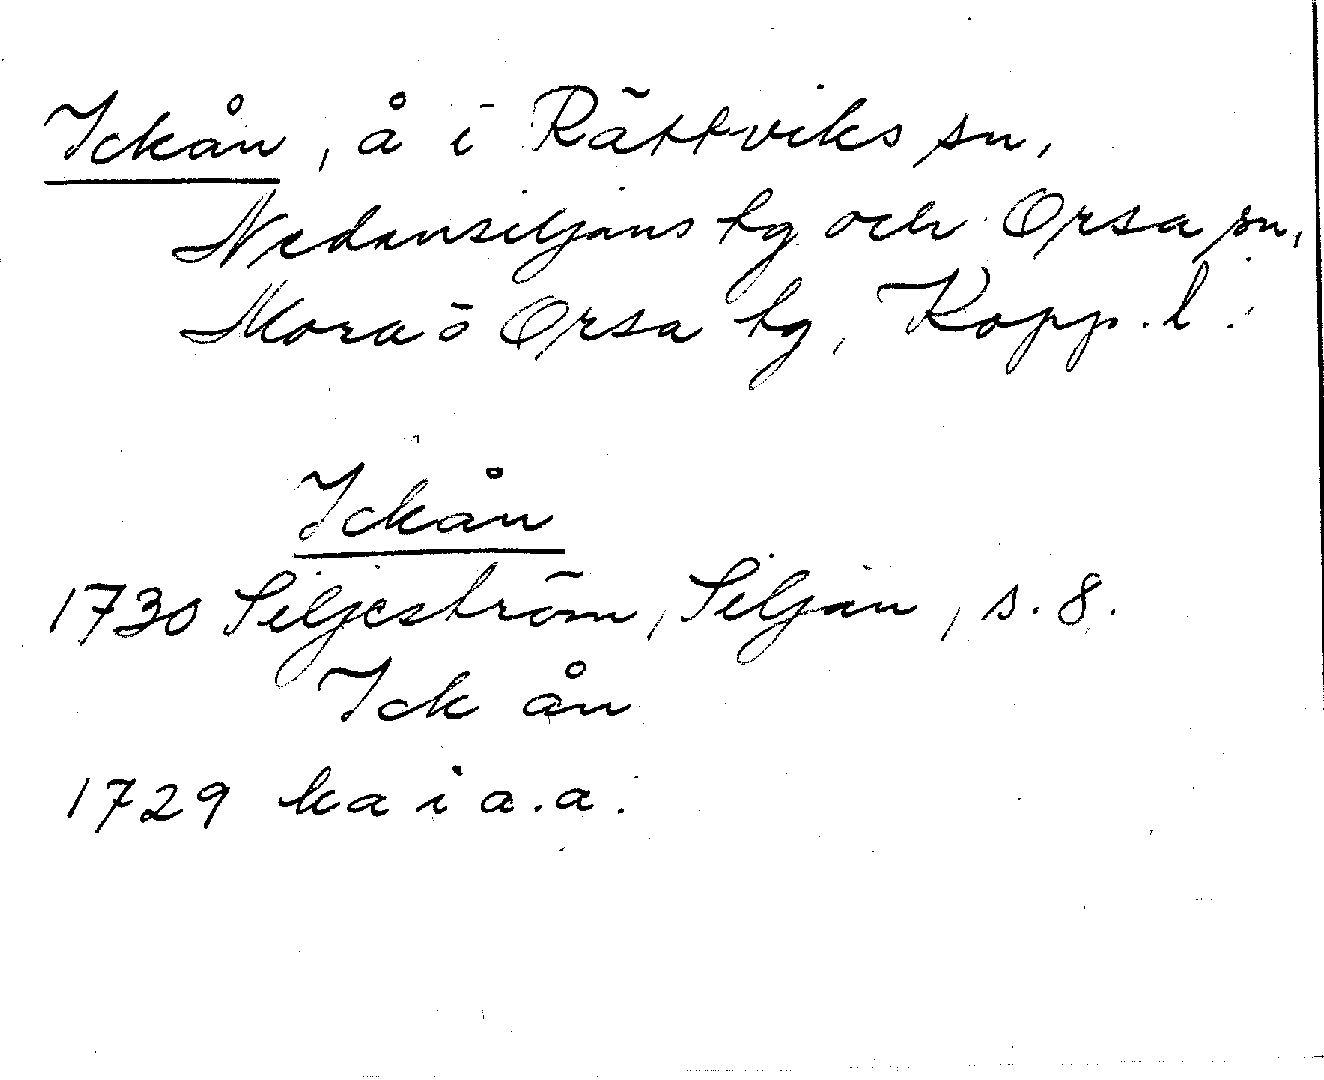 Ickån, å i Rättviks sn,
Nedansiljans tg och Orsa sn,
Mora o Orsa tg, Kopp. l.
Ickån
1730 Siljeström, Siljan, s. 8.
Ick ån
1729 ka i a.a.